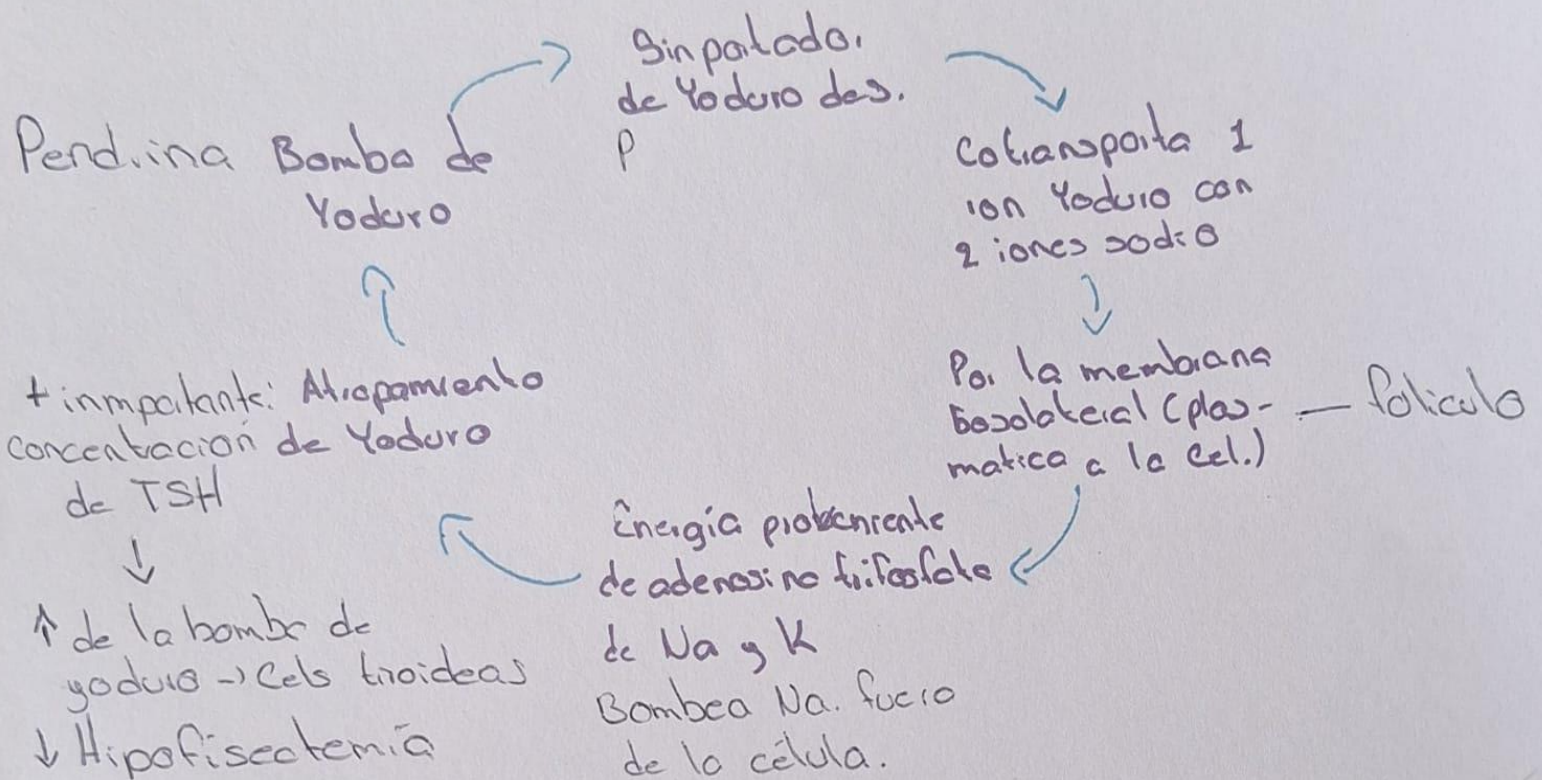 Sinportado.
de Yoduro des.
P
Pend.ina Bomba de
Yoduro
Cotransporta 1
ion Yoduro con
2 iones sodio
Por la membrana
basolateral (plas-
matica a la Cel.)
— foliculo
Energía
de adenosina trifosfato
de Na y K
Bombea Na. fuera
de la célula.
+ inmportante: Atrapamiento
concentracion de Yoduro
de TSH
↓
↑ de la bomba de
yoduro → Cels tiroideas
↓ Hipofisectemía